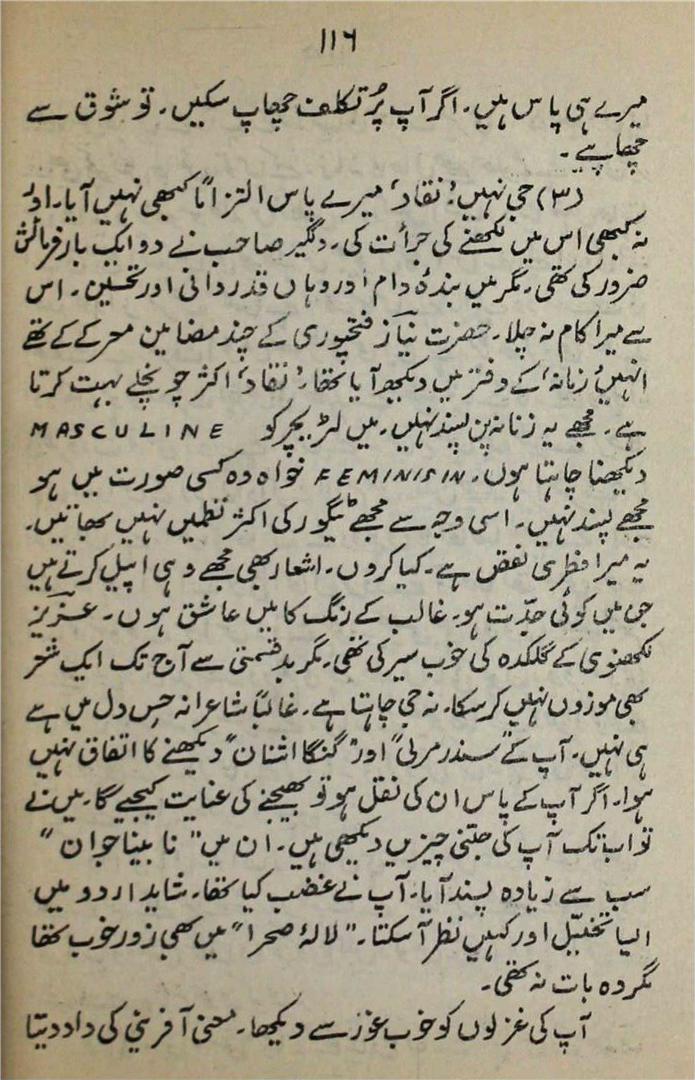 ۱۱۶
میرے ہی پاس ہیں۔ اگر آپ پُر تکلف چھاپ سکیں۔ تو شوق سے
چھاپیے۔
(۳) جی نہیں؛ ’نقاد‘ میرے پاس التزاماً کبھی نہیں آیا۔ اور
نہ کبھی اس میں لکھنے کی جرأت کی۔ دلگیر صاحب نے دو ایک بار فرمائش
ضرور کی تھی۔ مگر میں بندۂ دام اور وہاں قدردانی اور تحسین۔ اس
سے میرا کام نہ چلا۔ حضرت نیاز فتحپوری کے چند مضامین معرکے کے تھے
انہیں ’زمانہ‘ کے دفتر میں دیکھ آیا تھا۔ ’نقاد‘ اکثر چونچلے بہت کرتا
ہے۔ مجھے یہ زنانہ پن پسند نہیں۔ میں لٹریچر کو MASCULINE
دیکھنا چاہتا ہوں۔ FEMINISIN خواہ وہ کسی صورت میں ہو
مجھے پسند نہیں۔ اسی وجہ سے مجھے ٹیگور کی اکثر نظمیں نہیں بھاتیں۔
یہ میرا فطری نقص ہے۔ کیا کروں۔ اشعار بھی مجھے وہی اپیل کرتے ہیں
جن میں کوئی جدّت ہو۔ غالب کے رنگ کا میں عاشق ہوں۔ عزیز
لکھنوی کے گلکدہ کی خوب سیر کی تھی۔ مگر بدقسمتی سے آج تک ایک شعر
بھی موزوں نہیں کر سکا۔ نہ جی چاہتا ہے۔ غالباً شاعرانہ حس دل میں ہے
ہی نہیں۔ آپ کے ”سندر مرلی“ اور ”گنگا اشنان“ دیکھنے کا اتفاق نہیں
ہوا۔ اگر آپ کے پاس ان کی نقل ہو تو بھیجنے کی عنایت کیجیے گا۔ میں نے
تو اب تک آپ کی جتنی چیزیں دیکھی ہیں۔ ان میں ”نابینا جوان“
سب سے زیادہ پسند آیا۔ آپ نے غضب کیا تھا۔ شاید اردو میں
ایسا تخیّل اور کہیں نظر آ سکتا۔ ”لالۂ صحرا“ میں بھی زور خوب تھا
مگر وہ بات نہ تھی۔
آپ کی غزلوں کو خوب غور سے دیکھا۔ معنی آفرینی کی داد دیتا